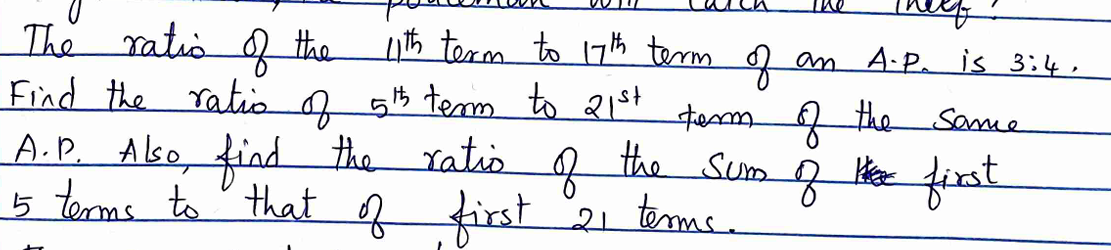 policeman will catch the thief?
The ratio of the 11th term to 17th term of an A.P. is 3:4.
Find the ratio of 5th term to 21st term of the same
A.P. Also, find the ratio of the sum of first
5 terms to that of first 21 terms.